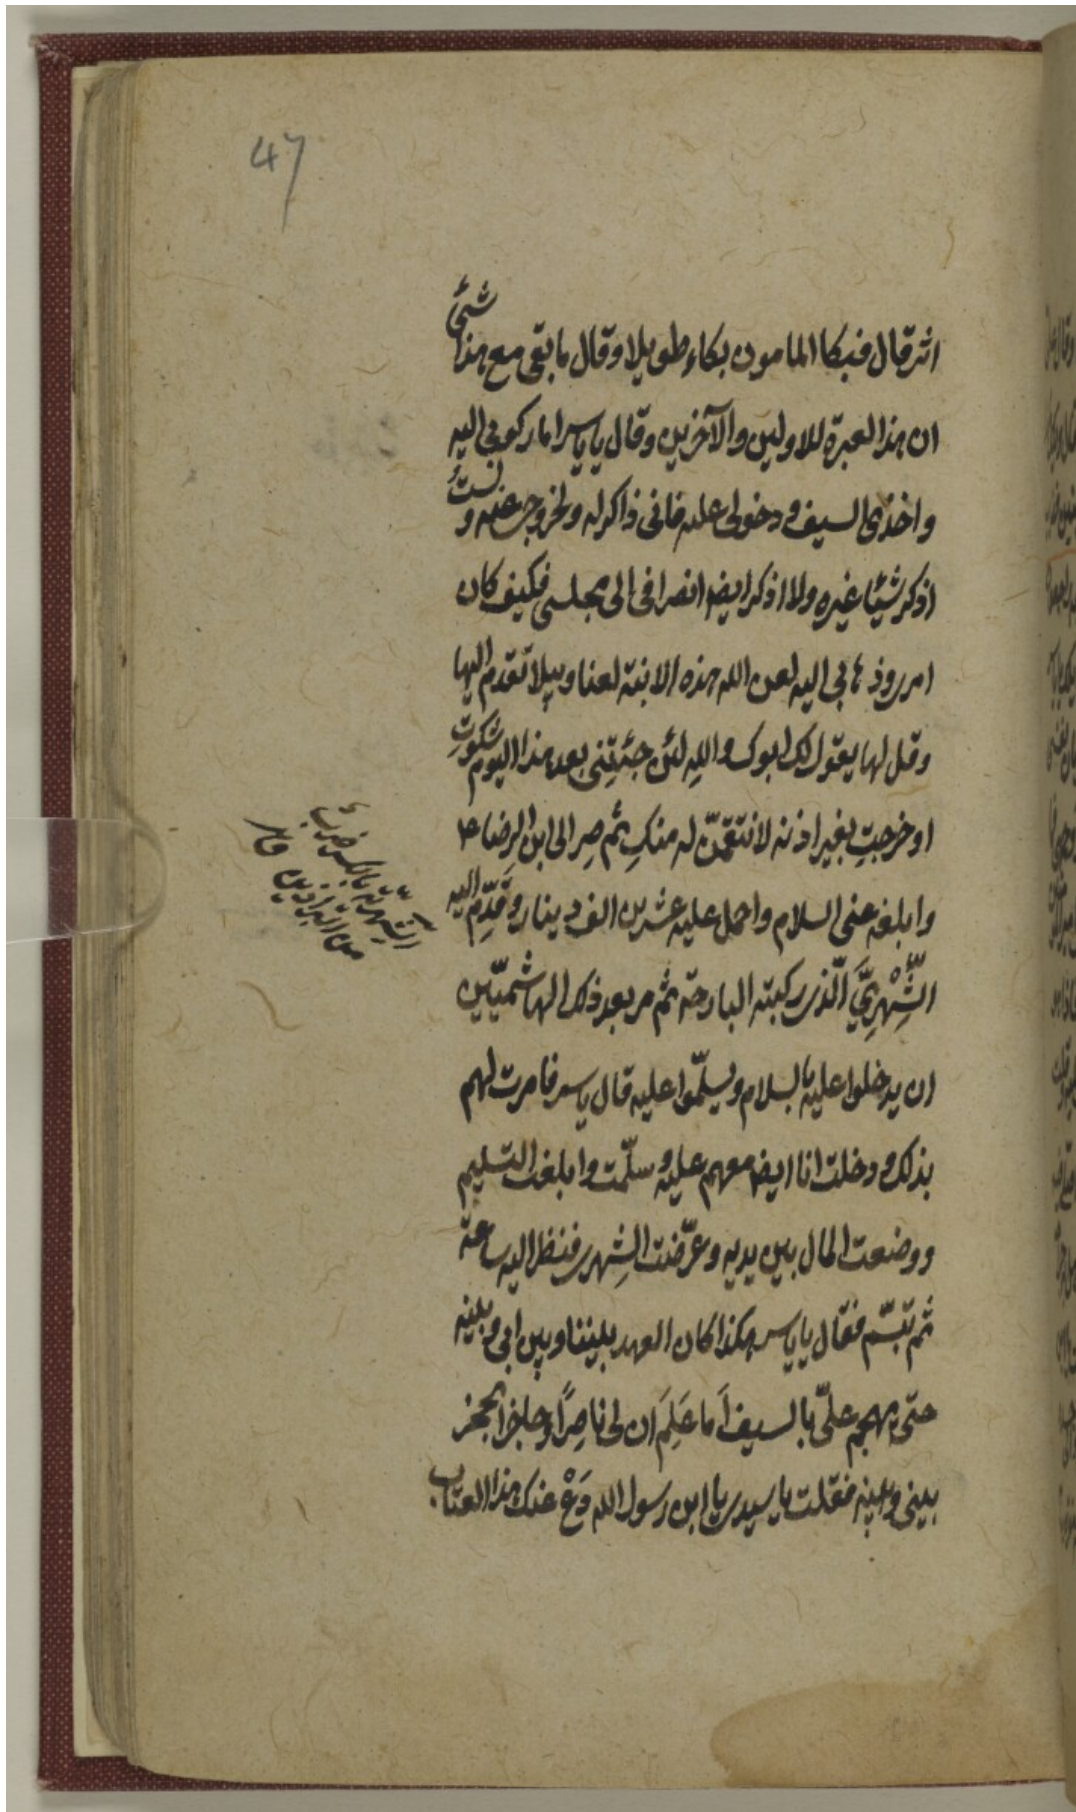 47
اثر قال فبكا المامون بكاء طويلا وقال ما بقى مع هذا شئ
ان هذا لعبرة للاولين والآخرين وقال يا ياسر اما ركوبى اليه
واخذى السيف ودخولى عليه فانى ذاكر له ولخروجى عنه ولست
اذكر شيئا غيره ولا اذكر ايضا انصرافى الى مجلسى فكيف كان
امرى وذهابى اليه لعن الله هذه الابنة لعنا وبيلا تقدم اليها
وقل لها يقول لك ابوك والله لئن جئتنى بعد هذا اليوم شكوتِ
او خرجتِ بغير اذنه لانتقمنّ له منكِ ثم صِر الى ابن الرضا ع
وابلغه عنى السلام واحمل عليه عشرين الف دينار وقَدِّم اليه
الشِّهْرِيَّ الّذى ركبته البارحة ثم مر بعد ذلك الهاشميّين
ان يدخلوا عليه بالسلام ويسلّموا عليه قال ياسر فامرت لهم
بذلك ودخلت انا ايضا معهم عليه وسلّمت وابلغت التسليم
ووضعت المال بين يديه وعرّضت الشِهرى فنظر اليه ساعة
ثم تبسّم فقال يا ياسر هكذا كان العهد بيننا وبين ابى وبينه
حتى يهجم علىّ بالسيف أَما عَلِمَ ان لى ناصِرًا وحاجزا يحجز
بينى وبينه فقلت يا سيدى يا ابن رسول الله دَعْ عنك هذا العتاب
الشِّهريّة بالكسر ضرب
من البراذين